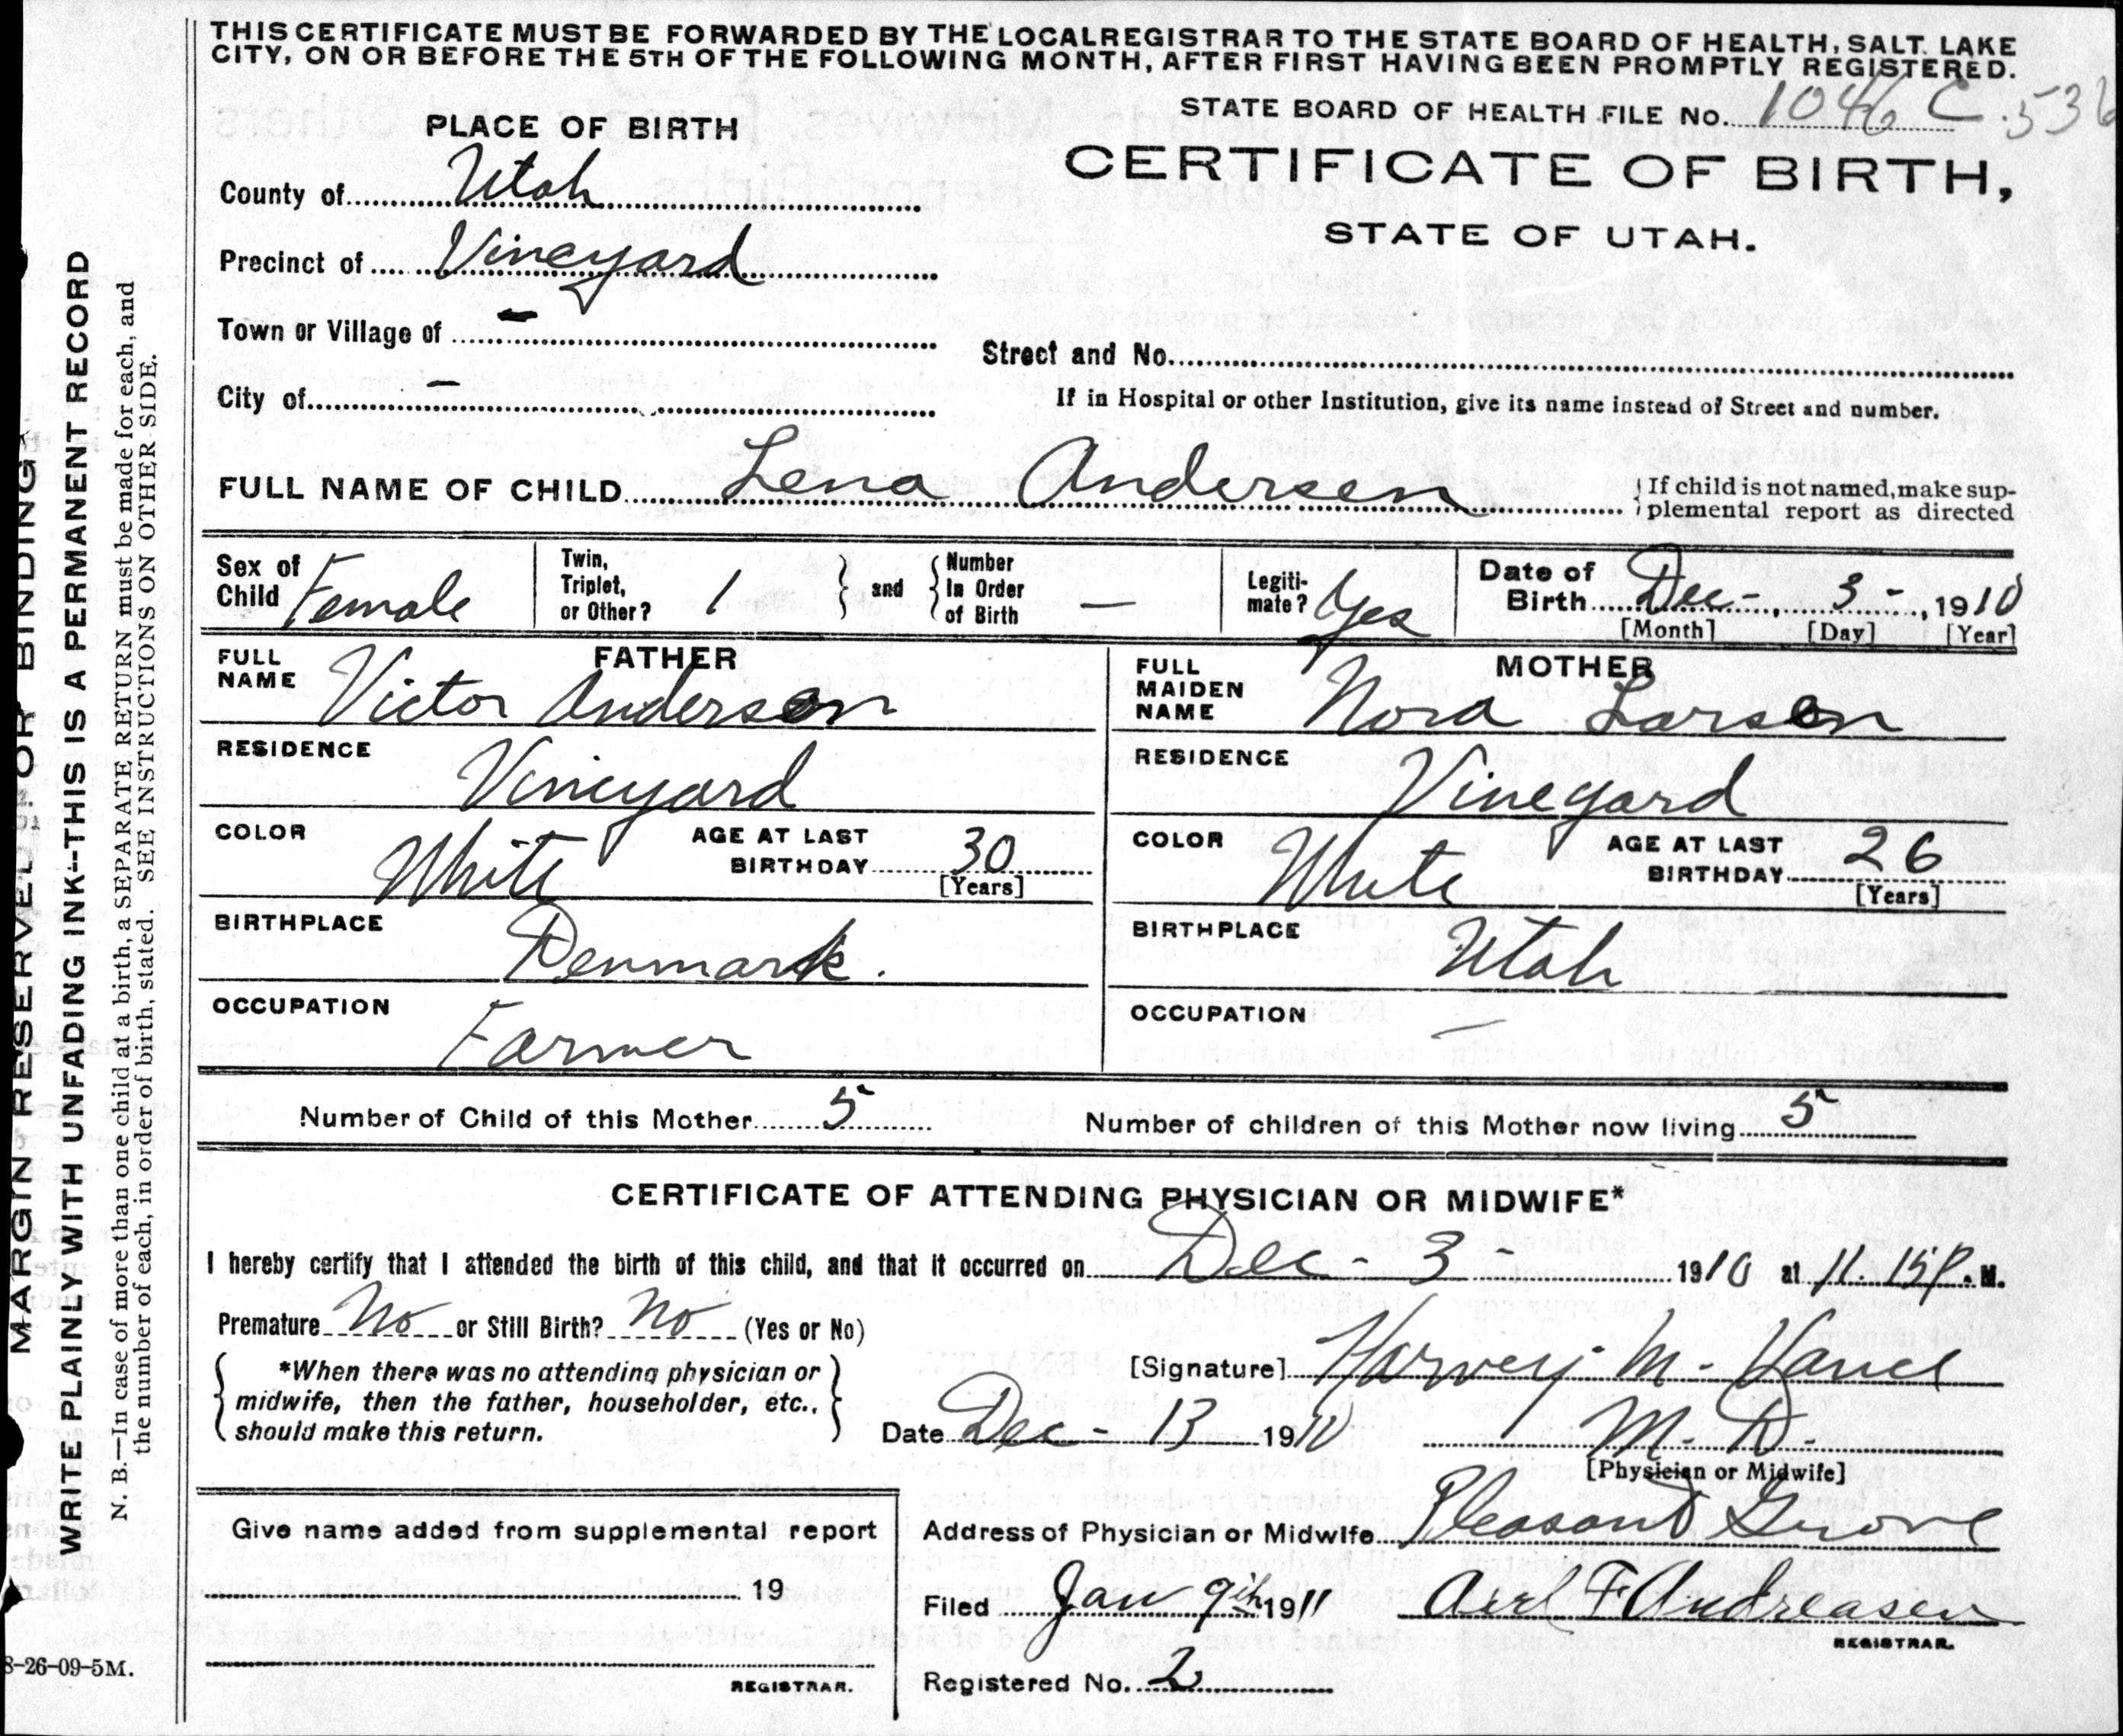 THIS CERTIFICATE MUST BE FORWARDED BY THE LOCAL REGISTRAR TO THE STATE BOARD OF HEALTH, SALT LAKE
CITY, ON OR BEFORE THE 5TH OF THE FOLLOWING MONTH, AFTER FIRST HAVING BEEN PROMPTLY REGISTERED.
STATE BOARD OF HEALTH FILE No. 1046 C. 536
PLACE OF BIRTH
CERTIFICATE OF BIRTH,
STATE OF UTAH.
County of Utah
Precinct of Vineyard
Town or Village of -
Street and No.
City of -
If in Hospital or other Institution, give its name instead of Street and number.
FULL NAME OF CHILD Lena Andersen
{If child is not named, make sup-
plemental report as directed
Sex of Child Female
Twin, Triplet, or Other? 1 } and { Number In Order of Birth —
Legiti-mate? Yes
Date of Birth Dec -, 3 -, 1910
[Month] [Day] [Year]
FATHER
FULL NAME Victor Anderson
RESIDENCE Vineyard
COLOR White AGE AT LAST BIRTHDAY 30
[Years]
BIRTHPLACE Denmark.
OCCUPATION Farmer
MOTHER
FULL MAIDEN NAME Nora Larsen
RESIDENCE Vineyard
COLOR White AGE AT LAST BIRTHDAY 26
[Years]
BIRTHPLACE Utah
OCCUPATION —
Number of Child of this Mother 5 Number of children of this Mother now living 5
CERTIFICATE OF ATTENDING PHYSICIAN OR MIDWIFE*
I hereby certify that I attended the birth of this child, and that it occurred on Dec - 3 - 1910 at 11.15 P. M.
Premature No or Still Birth? No (Yes or No)
*When there was no attending physician or
midwife, then the father, householder, etc.,
should make this return.
[Signature] Harvey M. Vance
Date Dec - 13 1910 M. D.
[Physician or Midwife]
Address of Physician or Midwife Pleasant Grove
Give name added from supplemental report
19
REGISTRAR.
Filed Jan 9th 1911 F Andreasen
REGISTRAR.
Registered No. 2
8-26-09-5M.
MARGIN RESERVED FOR BINDING
WRITE PLAINLY WITH UNFADING INK--THIS IS A PERMANENT RECORD
N. B.—In case of more than one child at a birth, a SEPARATE RETURN must be made for each, and
the number of each, in order of birth, stated. SEE INSTRUCTIONS ON OTHER SIDE.